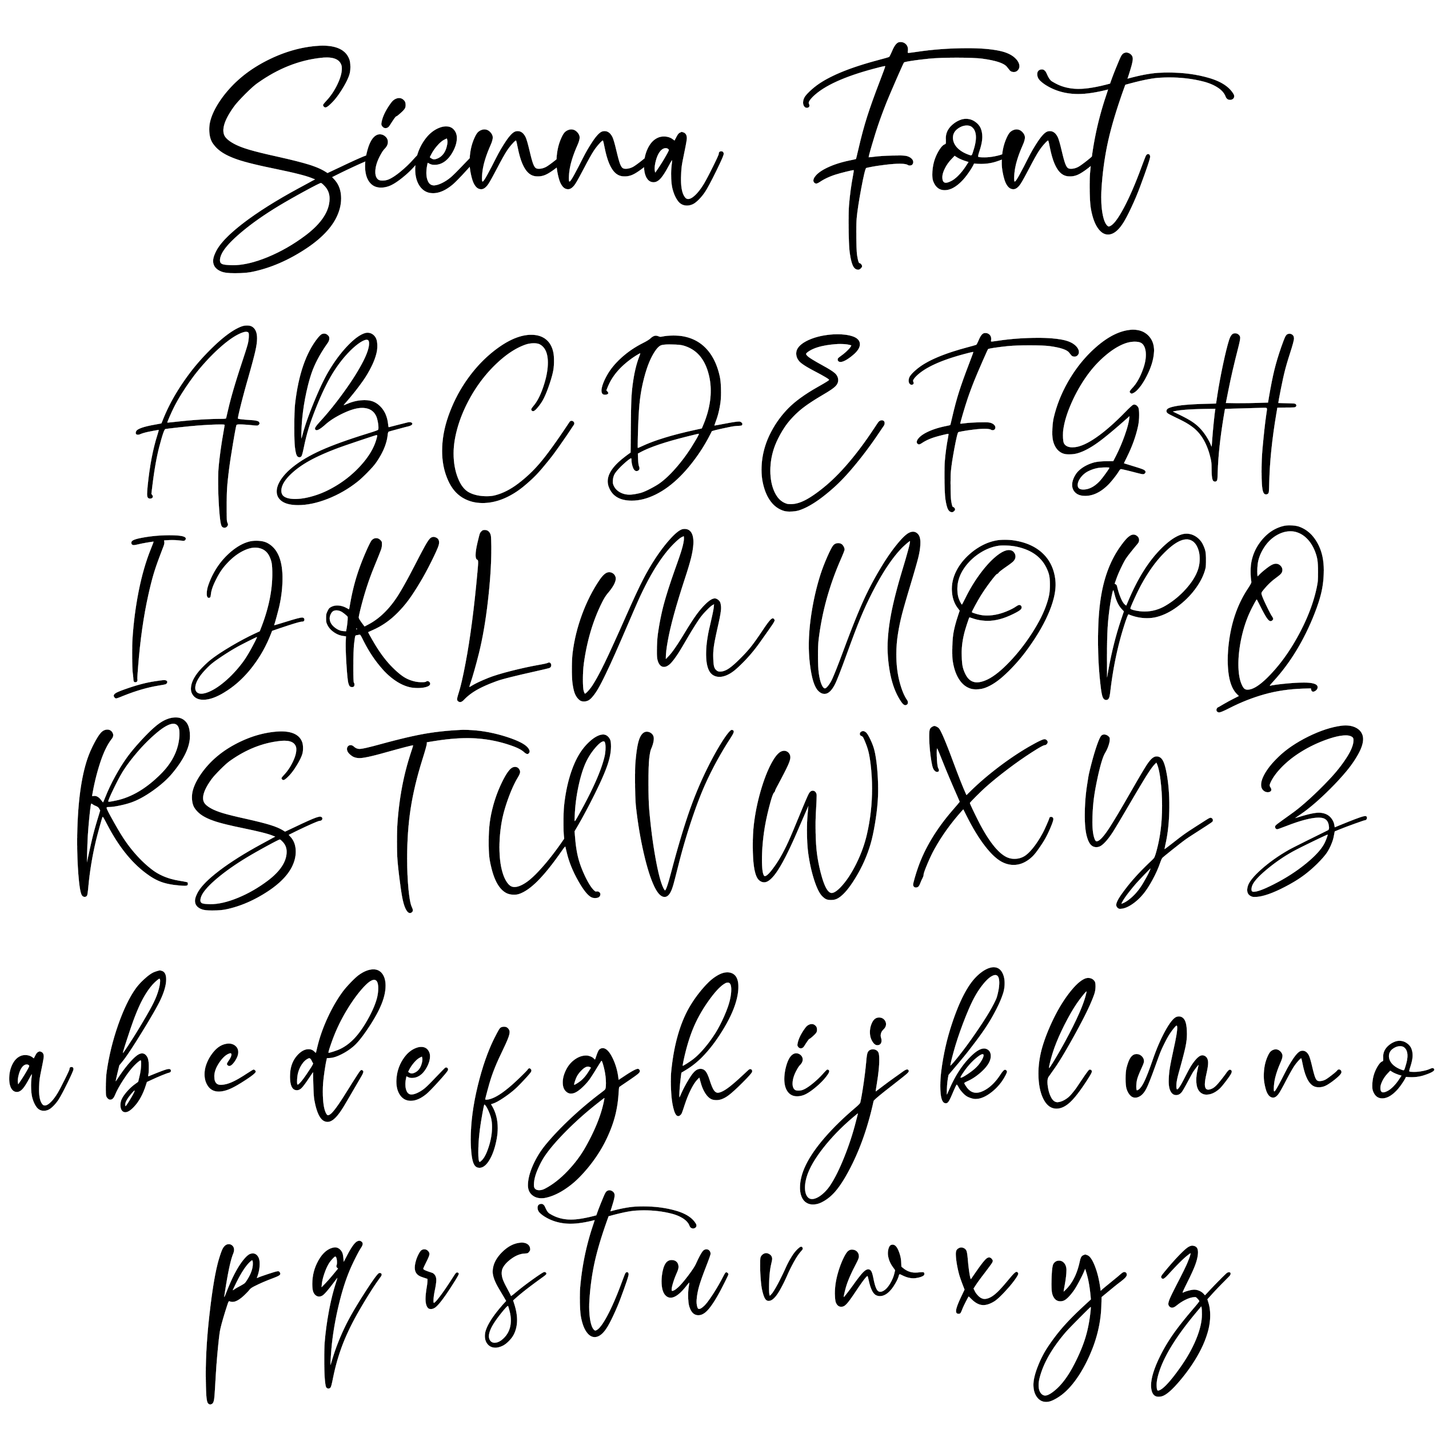 Sienna Font
A B C D E F G H
I J K L M N O P Q
R S T U V W X Y Z
a b c d e f g h i j k l m n o
p q r s t u v w x y z